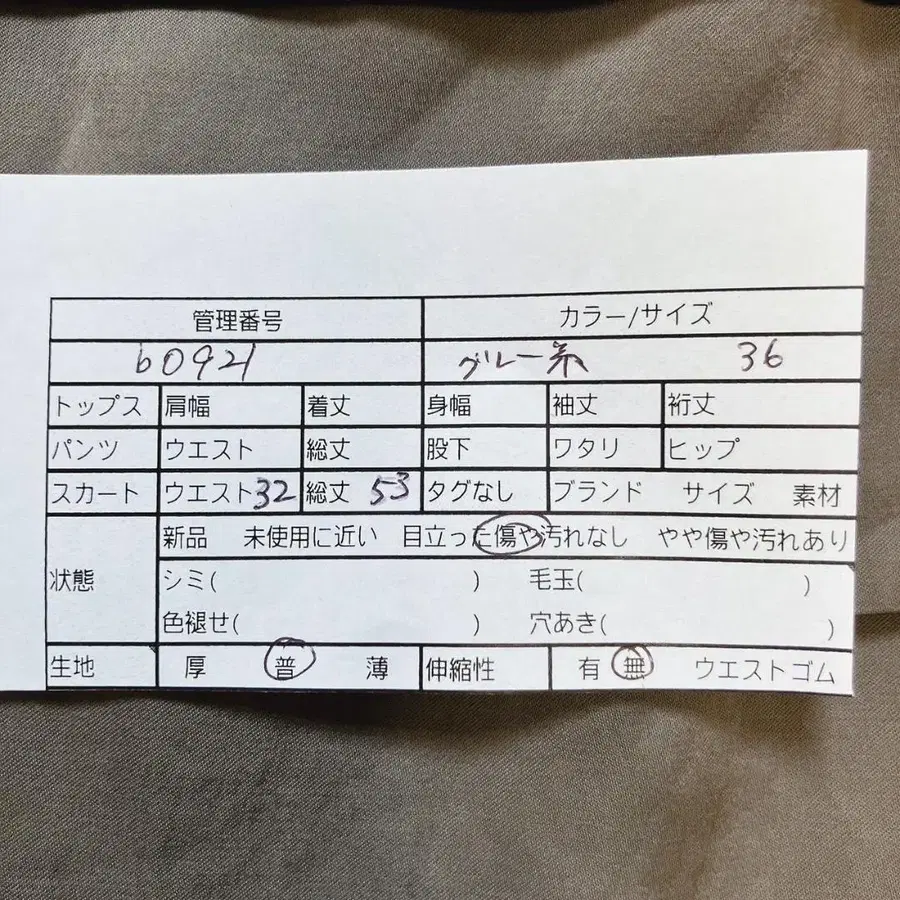 管理番号 カラー/サイズ
b0921 グレー系 36
トップス 肩幅 着丈 身幅 袖丈 裄丈
パンツ ウエスト 総丈 股下 ワタリ ヒップ
スカート ウエスト32 総丈 53 タグなし ブランド サイズ 素材
新品 未使用に近い 目立った傷や汚れなし やや傷や汚れあり
状態 シミ( ) 毛玉( )
色褪せ( ) 穴あき( )
生地 厚 普 薄 伸縮性 有 無 ウエストゴム